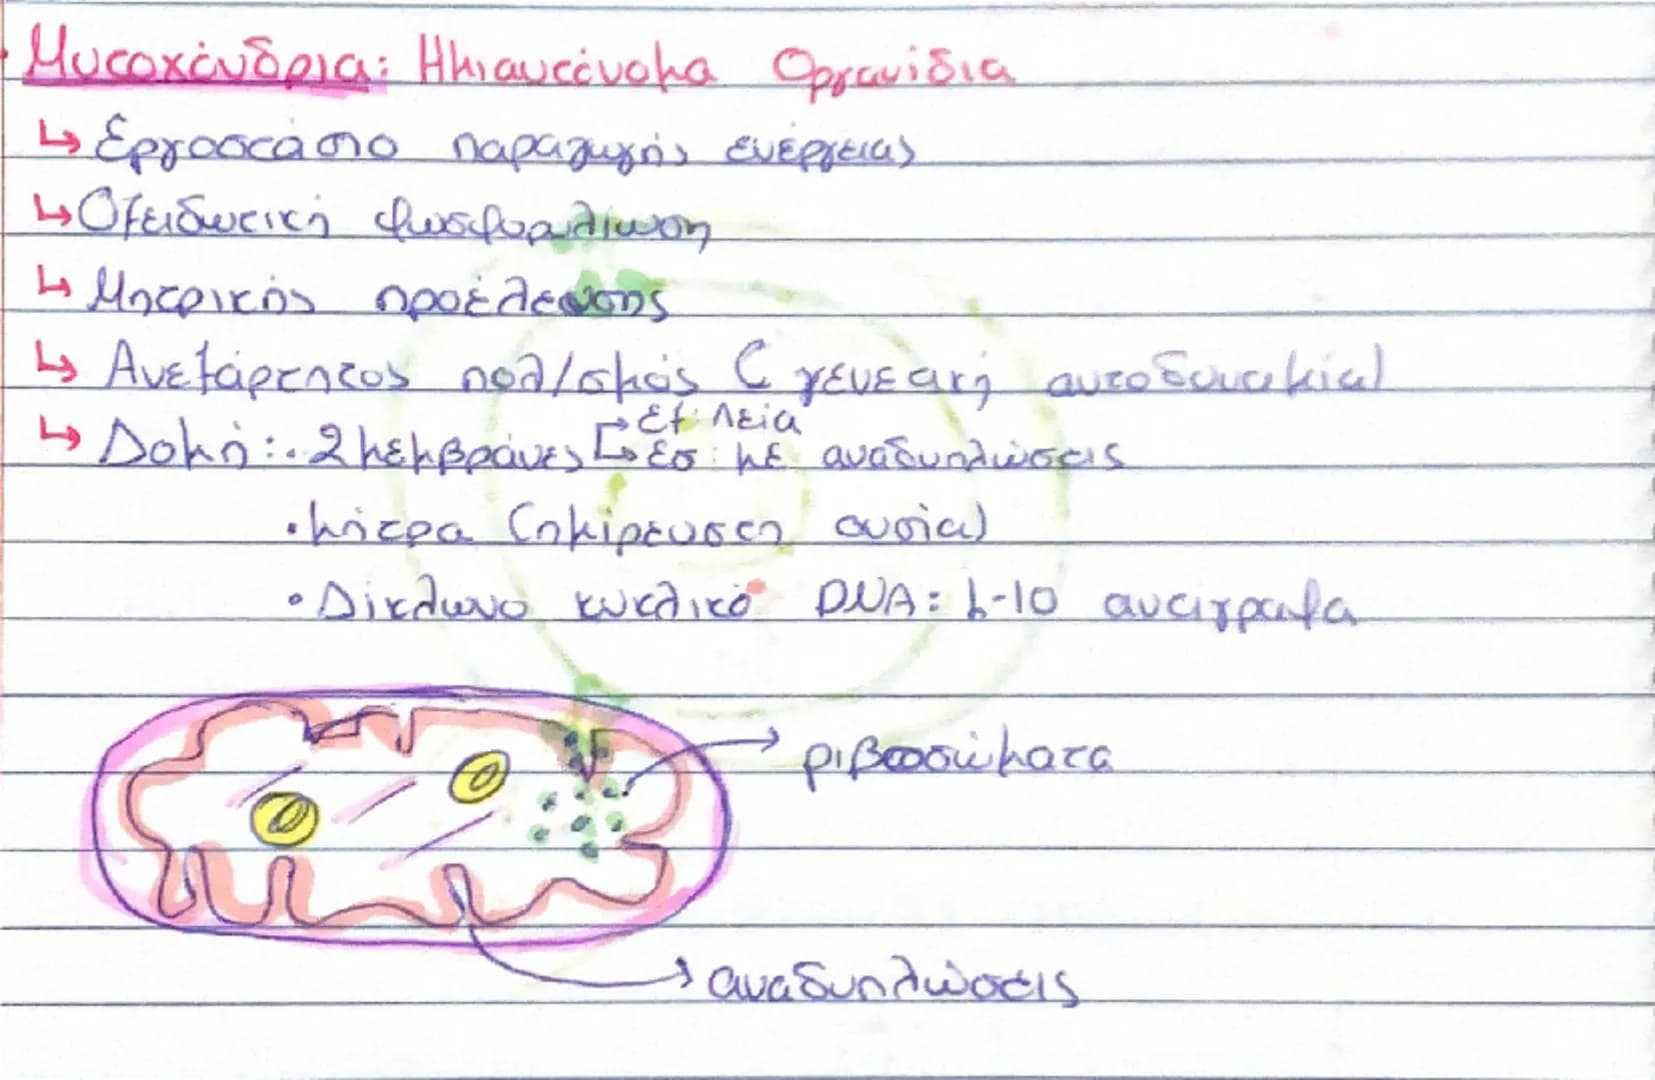 Μιτοχόνδρια: Ημιαυτόνομα Οργανίδια
↳ Εργοστάσιο παραγωγής ενέργειας
↳ Οξειδωτική φωσφορυλίωση
↳ Μητρικής προέλευσης
↳ Ανεξάρτητος πολ/σμός (γενετική αυτοδυναμία)
↳ Δομή: · 2 μεμβράνες
εξ: λεία
εσ: με αναδιπλώσεις
· μήτρα (ημίρευστη ουσία)
• Δίκλωνο κυκλικό DNA: 2-10 αντίγραφα
ριβοσώματα
αναδιπλώσεις